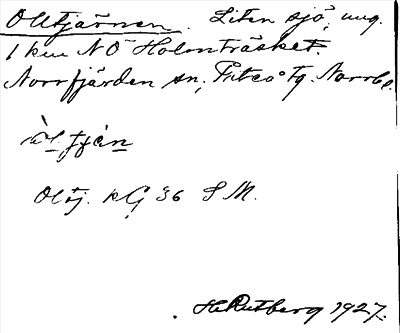 Olltjärnen. Liten sjö, ung.
1 km NÖ Holmträsket.
Norrfjärden sn, Piteå tg. Norrb.
Oltj. kG 36 S M.
H. Rutberg 1927.